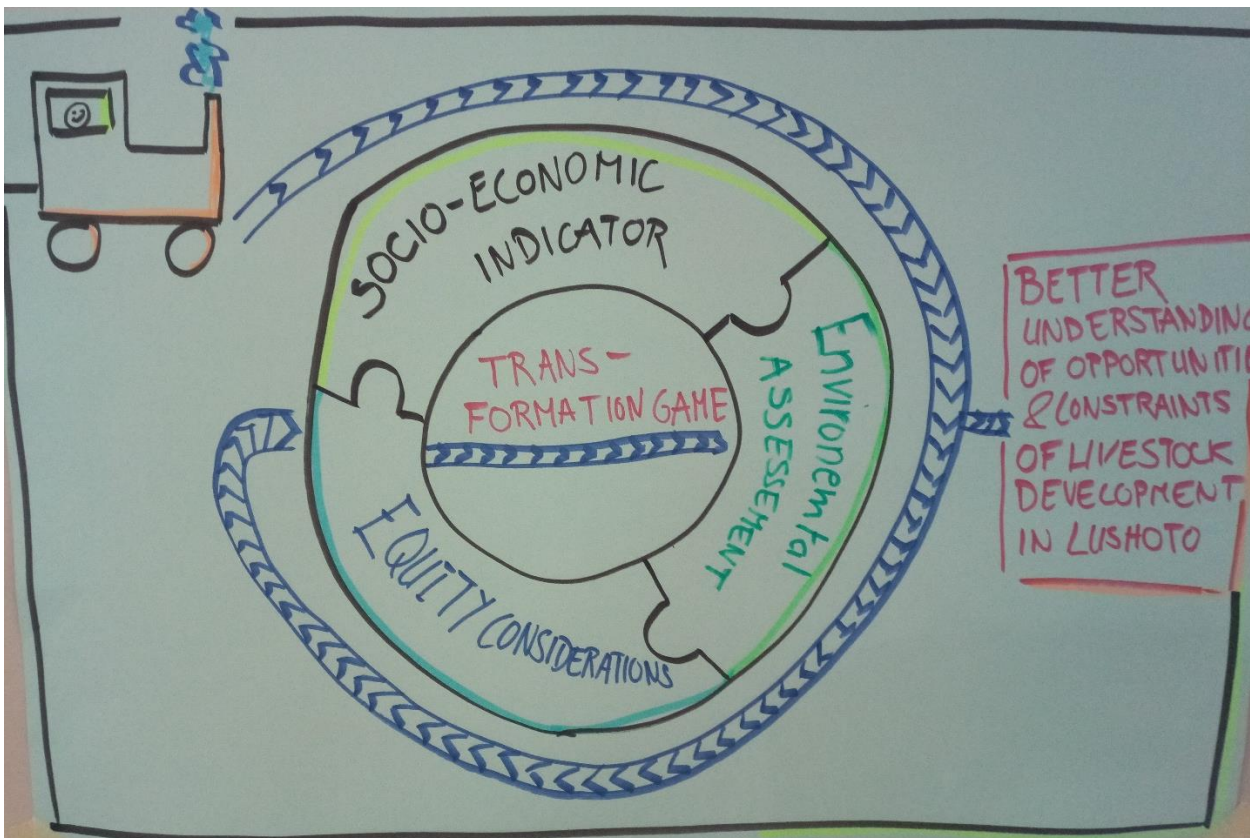 SOCIO-ECONOMIC
INDICATOR
TRANS-
FORMATION GAME
Environemental
ASSESSEMENT
EQUITY CONSIDERATIONS
BETTER
UNDERSTANDING
OF OPPORTUNITIE
& CONSTRAINTS
OF LIVESTOCK
DEVELOPMENT
IN LUSHOTO